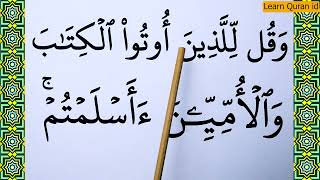 Learn Quran id
وَقُل لِّلَّذِينَ أُوتُوا۟ ٱلْكِتَـٰبَ
وَٱلْأُمِّيِّـۧنَ ءَأَسْلَمْتُمْ ۚ